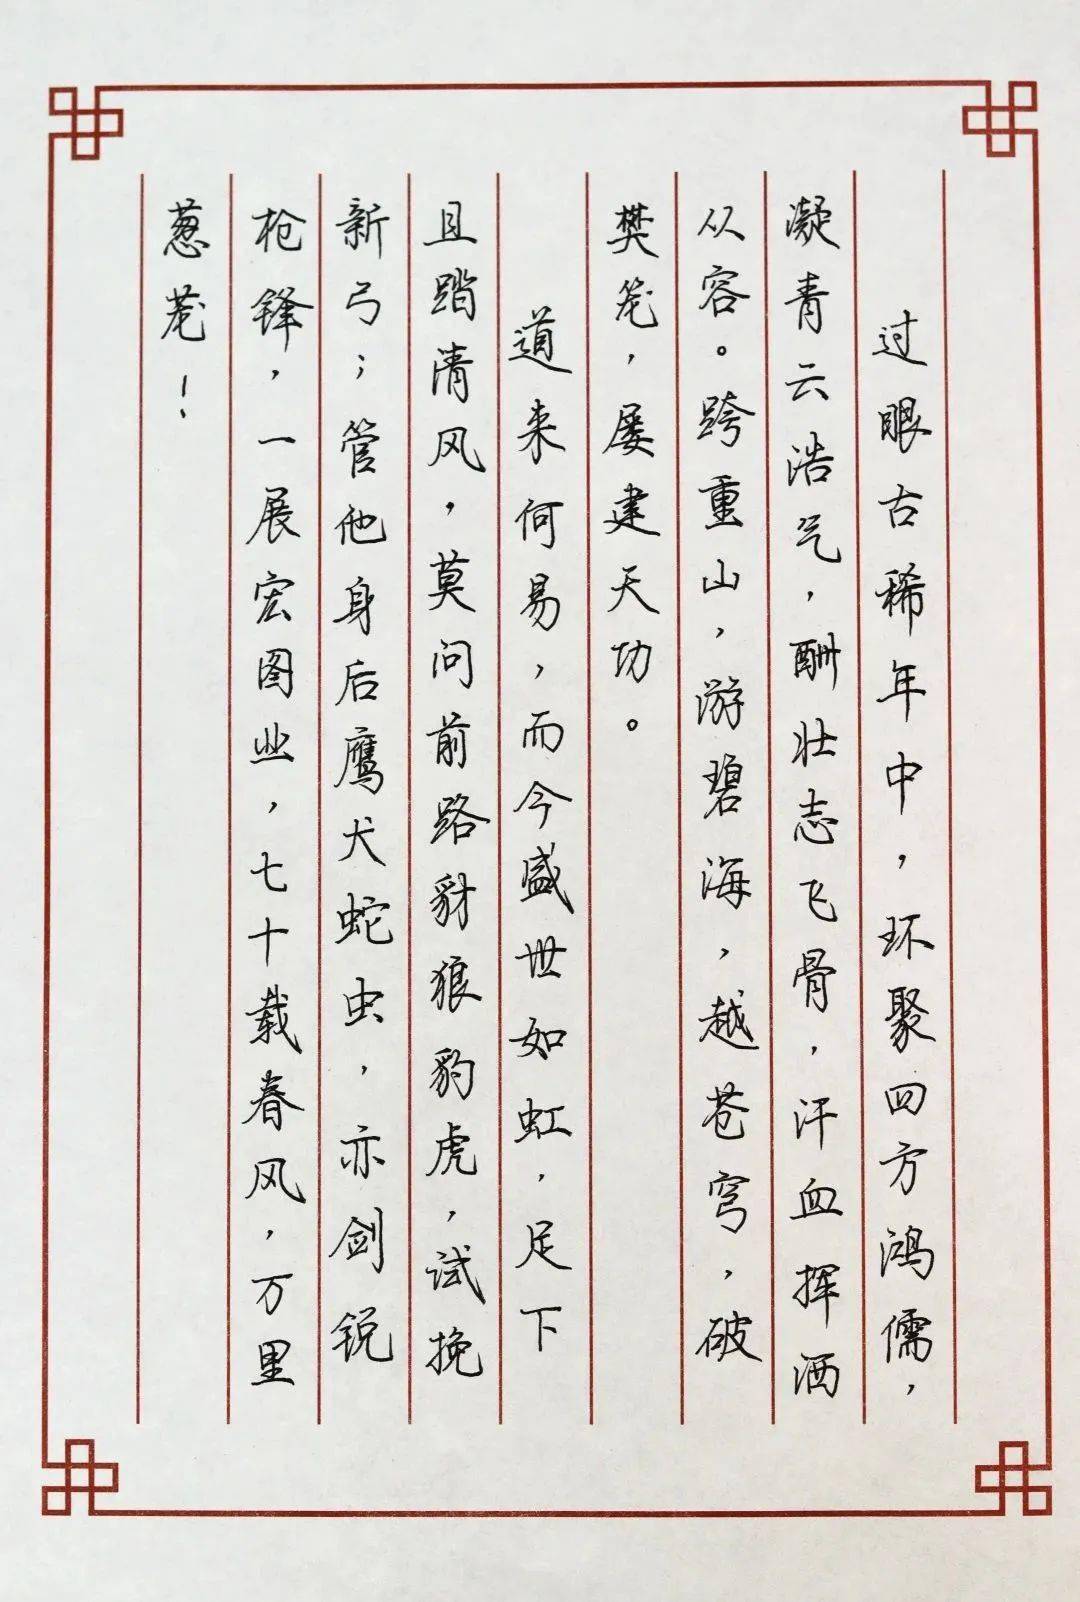 过眼古稀年中，环聚四方鸿儒，
凝青云浩气，酬壮志飞骨，汗血挥洒
从容。跨重山，游碧海，越苍穹，破
樊笼，屡建天功。
道来何易，而今盛世如虹，足下
且踏清风，莫问前路豺狼豹虎，试挽
新弓；管他身后鹰犬蛇虫，亦剑锐
枪锋，一展宏图业，七十载春风，万里
葱茏！